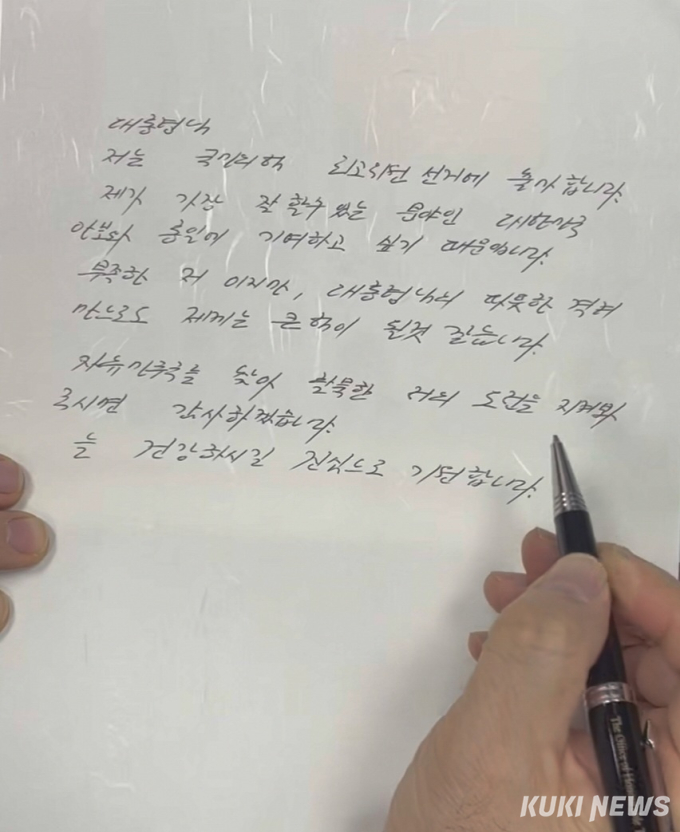 대통령님
저는 국민의힘 최고위원 선거에 출마합니다.
제가 가장 잘 할수 있는 분야인 대한민국
안보와 통일에 기여하고 싶기 때문입니다.
부족한 저 이지만, 대통령님의 따뜻한 격려
만으로도 저에게는 큰 힘이 될것 같습니다.
자유민주주의를 찾아 탈북한 저의 도전을 지켜봐
주시면 감사하겠습니다.
늘 건강하시길 진심으로 기원합니다.
The Office of
KUKI NEWS